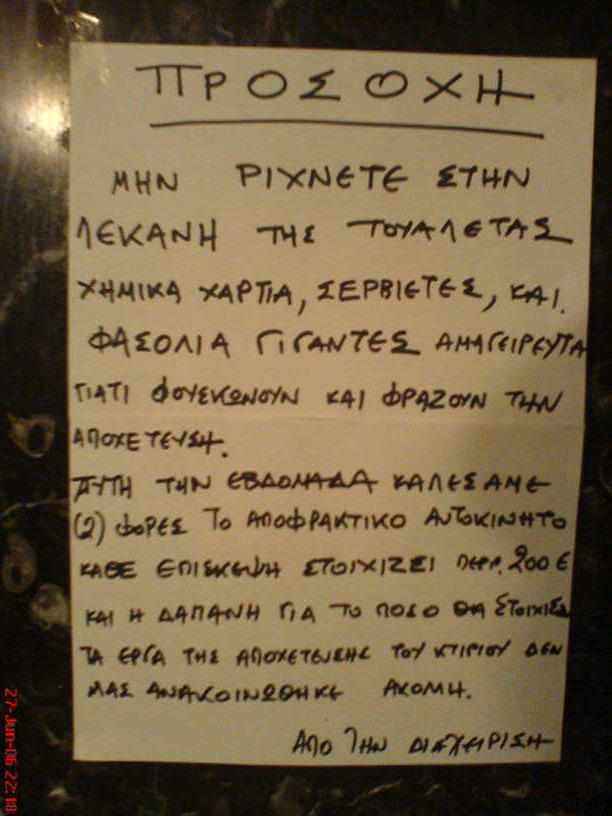 ΠΡΟΣΟΧΗ
ΜΗΝ ΡΙΧΝΕΤΕ ΣΤΗΝ
ΛΕΚΑΝΗ ΤΗΣ ΤΟΥΑΛΕΤΑΣ
ΧΗΜΙΚΑ ΧΑΡΤΙΑ, ΣΕΡΒΙΕΤΕΣ, ΚΑΙ
ΦΑΣΟΛΙΑ ΓΙΓΑΝΤΕΣ ΑΜΑΓΕΙΡΕΥΤΑ
ΓΙΑΤΙ ΦΟΥΣΚΩΝΟΥΝ ΚΑΙ ΦΡΑΖΟΥΝ ΤΗΝ
ΑΠΟΧΕΤΕΥΣΗ.
ΑΥΤΗ ΤΗΝ ΕΒΔΟΜΑΔΑ ΚΑΛΕΣΑΜΕ
(2) ΦΟΡΕΣ ΤΟ ΑΠΟΦΡΑΚΤΙΚΟ ΑΥΤΟΚΙΝΗΤΟ
ΚΑΘΕ ΕΠΙΣΚΕΨΗ ΣΤΟΙΧΙΖΕΙ ΠΕΡΡ. 200 €
ΚΑΙ Η ΔΑΠΑΝΗ ΓΙΑ ΤΟ ΠΟΣΟ ΘΑ ΣΤΟΙΧΙΣΟΥΝ
ΤΑ ΕΡΓΑ ΤΗΣ ΑΠΟΧΕΤΕΥΣΗΣ ΤΟΥ ΚΤΙΡΙΟΥ ΔΕΝ
ΜΑΣ ΑΝΑΚΟΙΝΩΘΗΚΕ ΑΚΟΜΗ.
ΑΠΟ ΤΗΝ ΔΙΑΧΕΙΡΙΣΗ
27-Jun-06 22:18